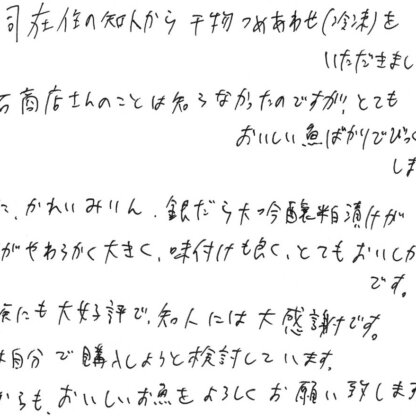 司在住の知人から干物つめあわせ(冷凍)を
いただきまし
石商店さんのことは知らなかったのですが、とても
おいしい魚ばかりでびっく
しま
に、かれいみりん、銀だら大吟醸粕漬けが
がやわらかく大きく、味付けも良く、とてもおいしか
です。
族にも大好評で、知人には大感謝です。
は自分で購入しようと検討しています。
からも、おいしいお魚をよろしくお願い致します